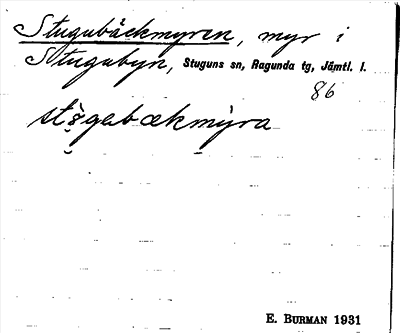 Stugubäckmyren, myr i
Stugubyn, Stuguns sn, Ragunda tg, Jämtl. l.
86
E. BURMAN 1931